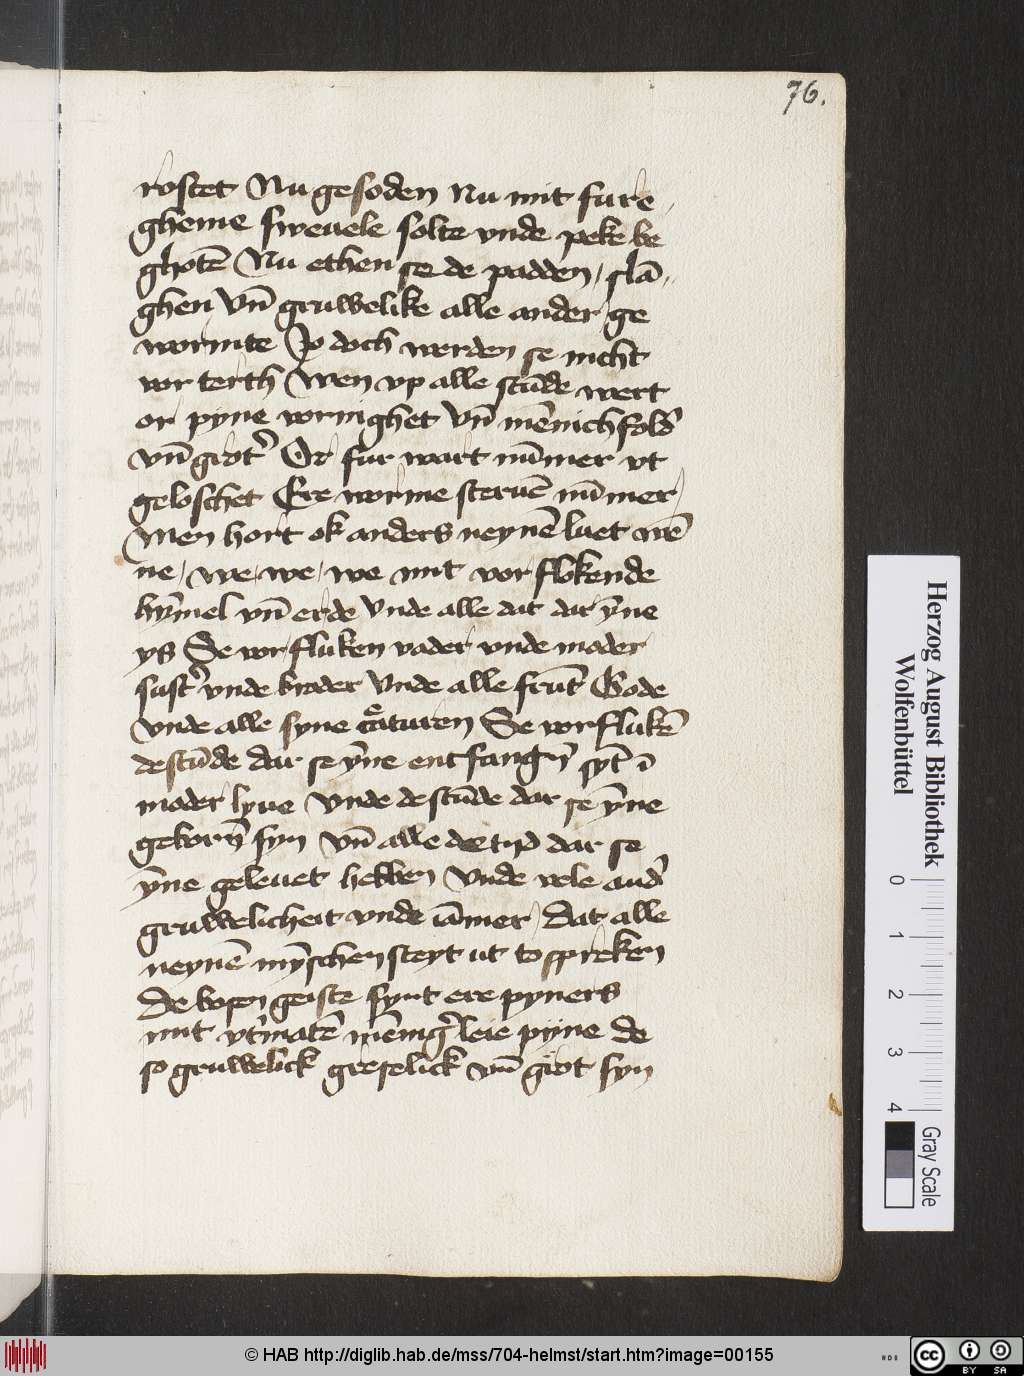 76.
rostet Nu gesoden Nu mit fure
gheme sweuele solte vnde peke be
ghotē Nu ethen se de padden, slā
ghen vn̄ gruwelike alle ander ge
wormte Jo doch werden se nicht
vor terth Men vp alle stūde wert
or pyne vornighet vn̄ mēnichfold
vn̄ grot Or fur wart nūmer vt
geloschet Ere worme steruē nūmer
Men hort ok anders neynē luet wē
ne, we, we, we mit vor flokende
hȳmel vn̄ erde vnde alle dat dar ȳne
ys Se vor fluken vader vnde moder
sust vnde broder vnde alle frūt Gode
vnde alle syne c̄aturen Se vorflukē
de stūde dar se ȳne entfangn̄ syt ī
moder lyue vnde de stūde dar se ȳne
geborn̄ syn vn̄ alle de tyd dar se
ȳne geleuet hebben vnde vele and
gruwelicheit vnde iāmer, dat alle
neynē mȳschen steyt ut to spreken
De bosen geiste synt ere pyners
mit vtmatē mēnigleie pijne de
so gruwelick greselick vn̄ grot syn
Herzog August Bibliothek
Wolfenbüttel
0 1 2 3 4
Gray Scale
© HAB http://diglib.hab.de/mss/704-helmst/start.htm?image=00155
cc BY SA